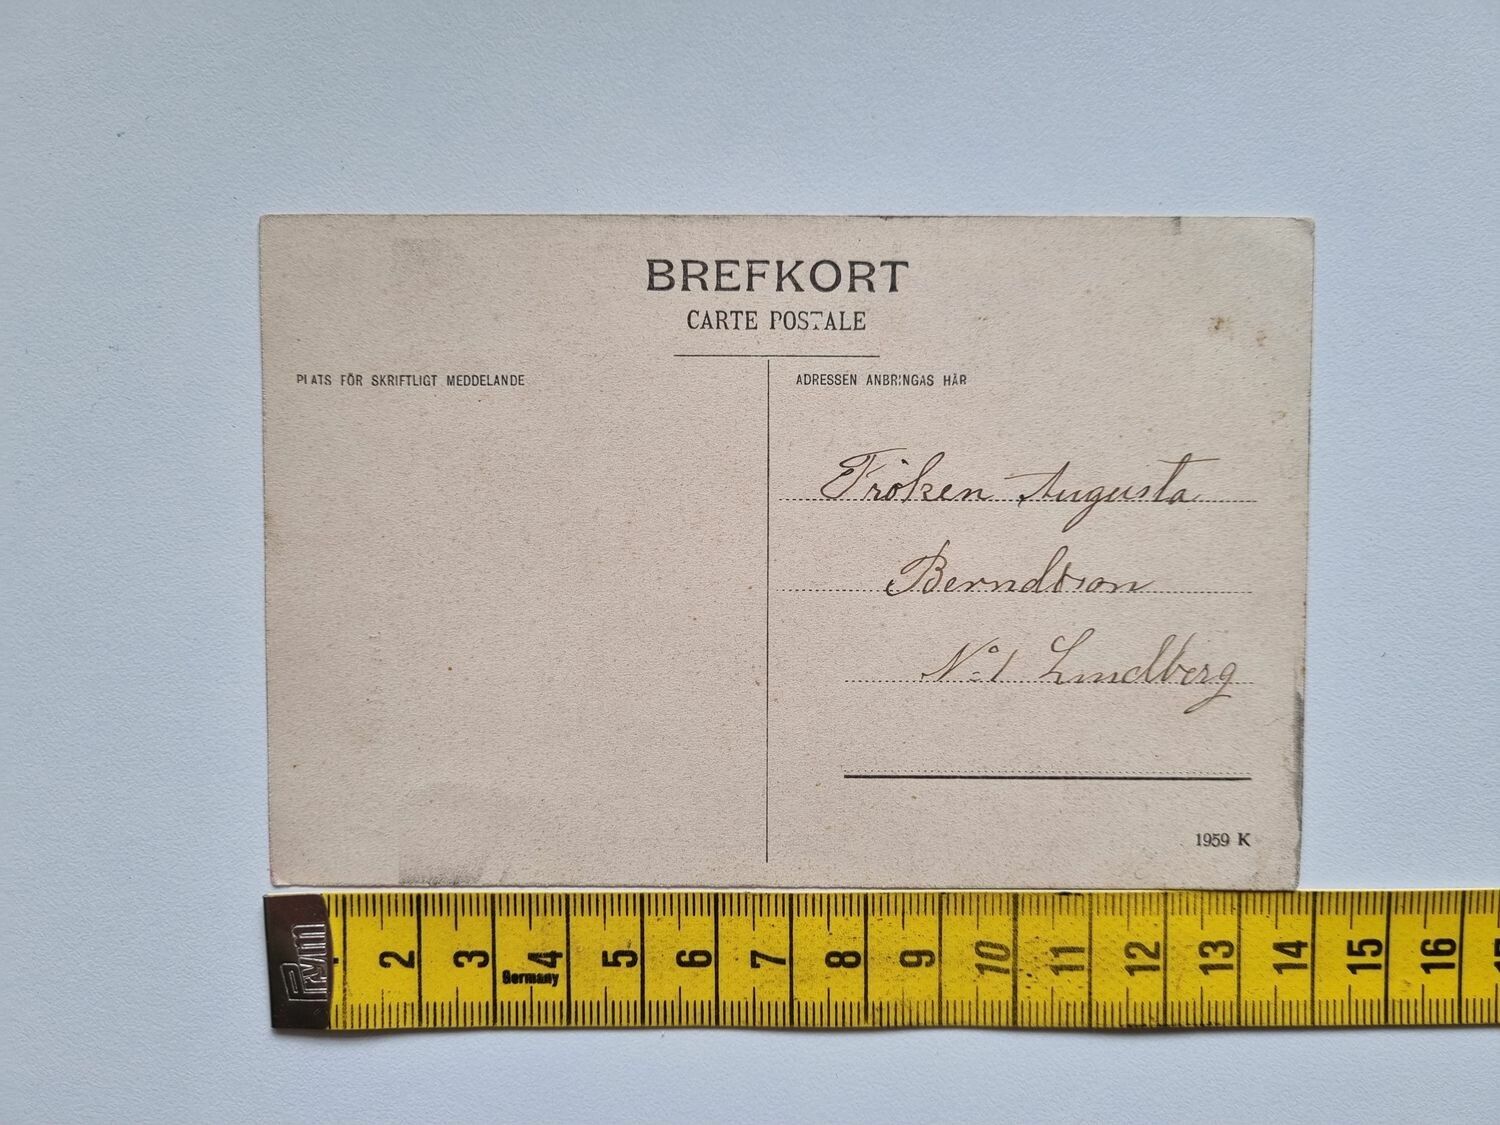 BREFKORT
CARTE POSTALE
PLATS FÖR SKRIFTLIGT MEDDELANDE
ADRESSEN ANBRINGAS HÄR
Fröken Augusta
Berndtson
No 1 Lindberg
1959 K
Prym
2 3 4 5 6 7 8 9 10 11 12 13 14 15 16
Germany